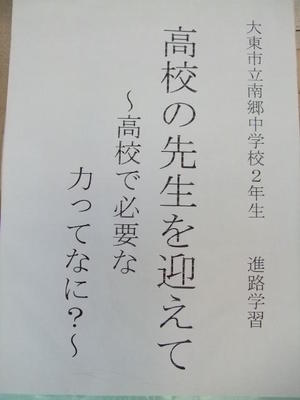 大東市立南郷中学校2年生　進路学習
高校の先生を迎えて
～高校で必要な
力ってなに?～